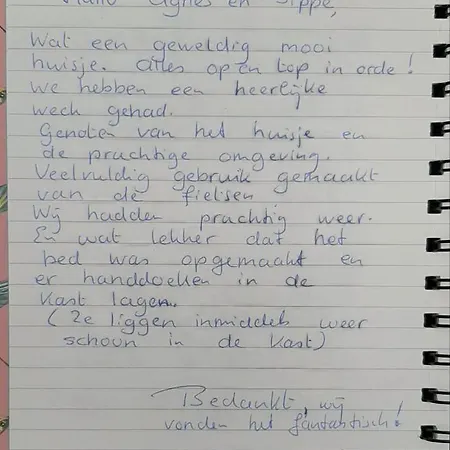 Hallo Agnes en Sippe,
Wat een geweldig mooi
huisje. Alles op en top in orde!
We hebben een heerlijke
week gehad.
Genoten van het huisje en
de prachtige omgeving.
Veelvuldig gebruik gemaakt
van de fietsen
Wij hadden prachtig weer.
En wat lekker dat het
bed was opgemaakt en
er handdoeken in de
kast lagen.
(Ze liggen inmiddels weer
schoon in de kast)
Bedankt, wij
vonden het fantastisch!